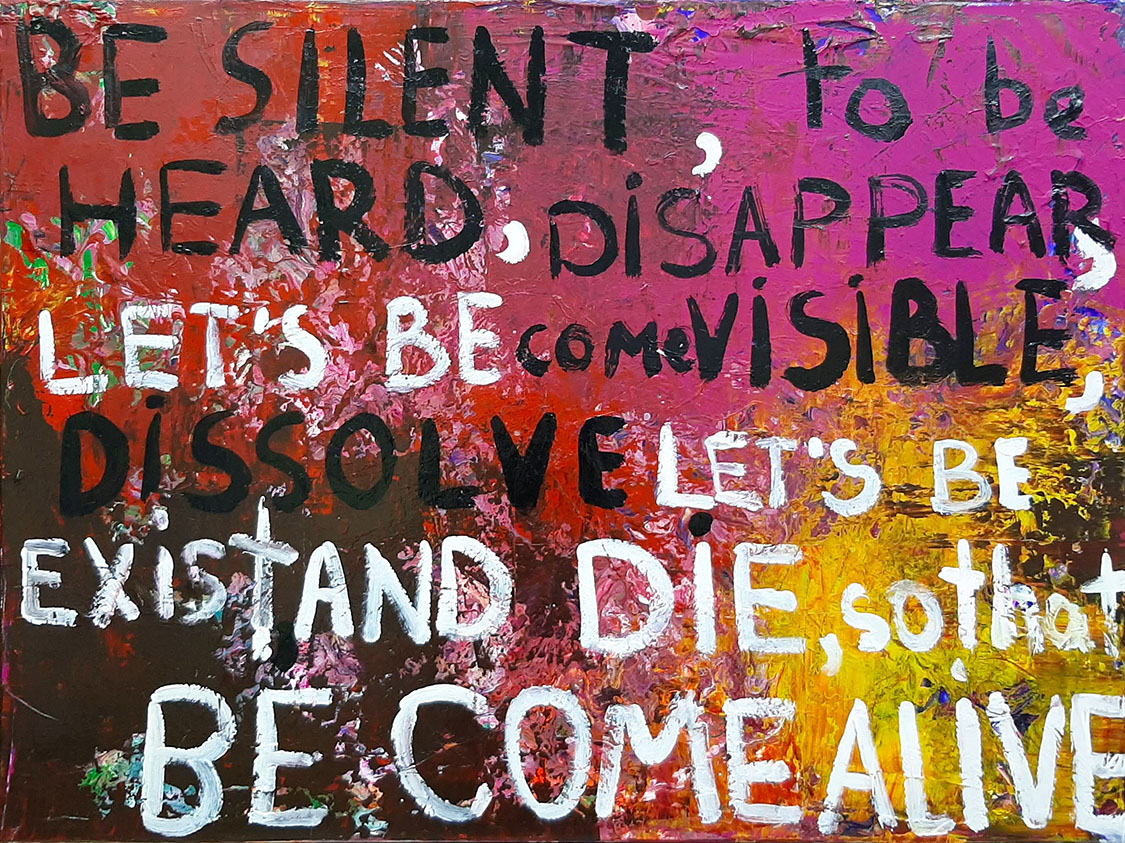 BE SILENT, to be
HEARD, DiSAPPEAR,
LET'S BE comeViSiBLE,
DiSSOLVE LET'S BE
EXisTAND DiE, so that
BE COME ALIVE